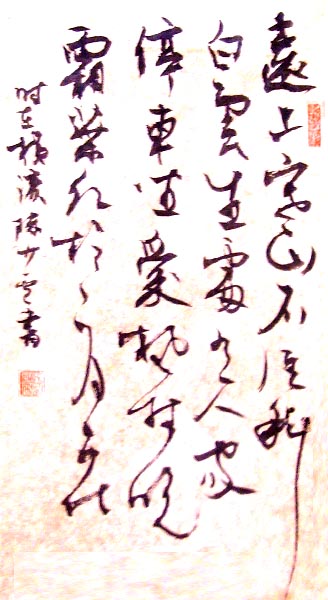 遠上寒山石徑斜
白雲生處有人家
停車坐愛楓林晚
霜葉紅於二月花
时在横濱陳少雲書